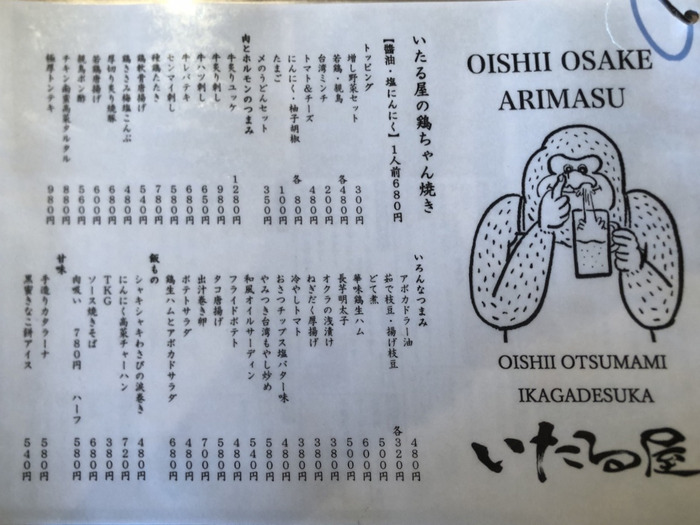 OISHII OSAKE
ARIMASU
OISHII OTSUMAMI
IKAGADESUKA
いたる屋
いたる屋の鶏ちゃん焼き
【醬油・塩にんにく】1人前680円
トッピング
増し野菜セット 300円
若鶏・親鳥 各480円
台湾ミンチ 200円
トマト&チーズ 480円
にんにく・柚子胡椒 各80円
たまご 100円
〆のうどんセット 350円
肉とホルモンのつまみ
牛炙りユッケ 1280円
牛炙り刺し 980円
牛ハツ刺し 650円
牛レバテキ 680円
センマイ刺し 580円
種鶏たたき 780円
鶏軟骨唐揚げ 540円
鶏ささみ梅塩こんぶ 480円
厚切り炙り焼豚 680円
若鶏唐揚げ 600円
親鳥ポン酢 560円
チキン南蛮高菜タルタル 880円
極厚トンテキ 980円
いろんなつまみ
アボカドラー油 480円
茹で枝豆・揚げ枝豆 各320円
どて煮 500円
華味鶏生ハム 600円
長芋明太子 500円
オクラの浅漬け 380円
ねぎだく厚揚げ 380円
冷やしトマト 380円
おさつチップス塩バター味 480円
やみつき台湾もやし炒め 580円
和風オイルサーディン 540円
フライドポテト 480円
タコ唐揚げ 580円
出汁巻き卵 700円
ポテトサラダ 480円
鶏生ハムとアボカドサラダ 680円
飯もの
シャキシャキわさびの涙巻き 480円
にんにく高菜チャーハン 720円
TKG 380円
ソース焼きそば 680円
肉吸い 780円 ハーフ 580円
甘味
手造りカタラーナ 580円
黒蜜きなこ餅アイス 540円